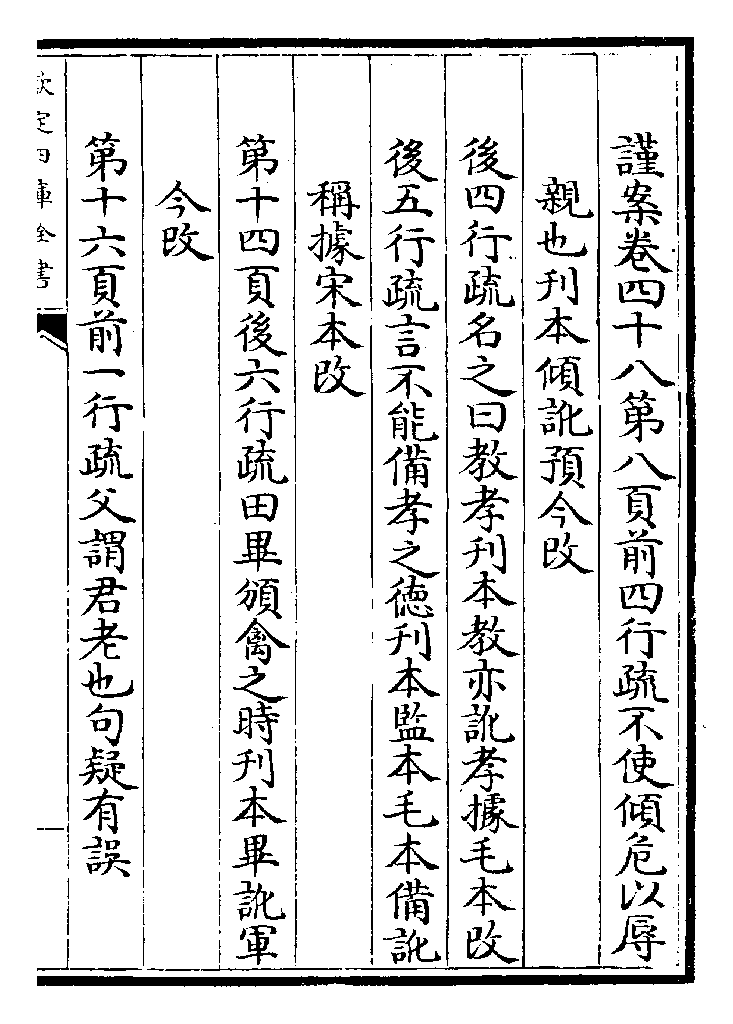 謹案卷四十八第八頁前四行疏不使傾危以辱
親也刋本傾訛預今改
後四行疏名之曰教孝刋本教亦訛孝據毛本改
後五行疏言不能備孝之徳刋本監本毛本備訛
稱據宋本改
第十四頁後六行疏田畢頒禽之時刋本畢訛軍
今改
第十六頁前一行疏父謂君老也句疑有誤
欽定四庫全書